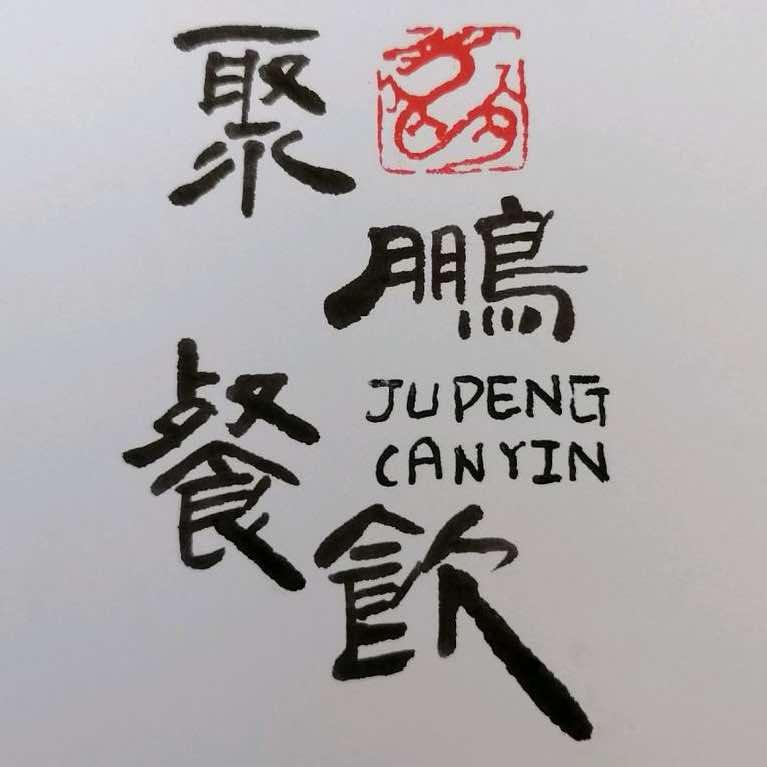 聚
鵬
餐
JUPENG
CANYIN
飲